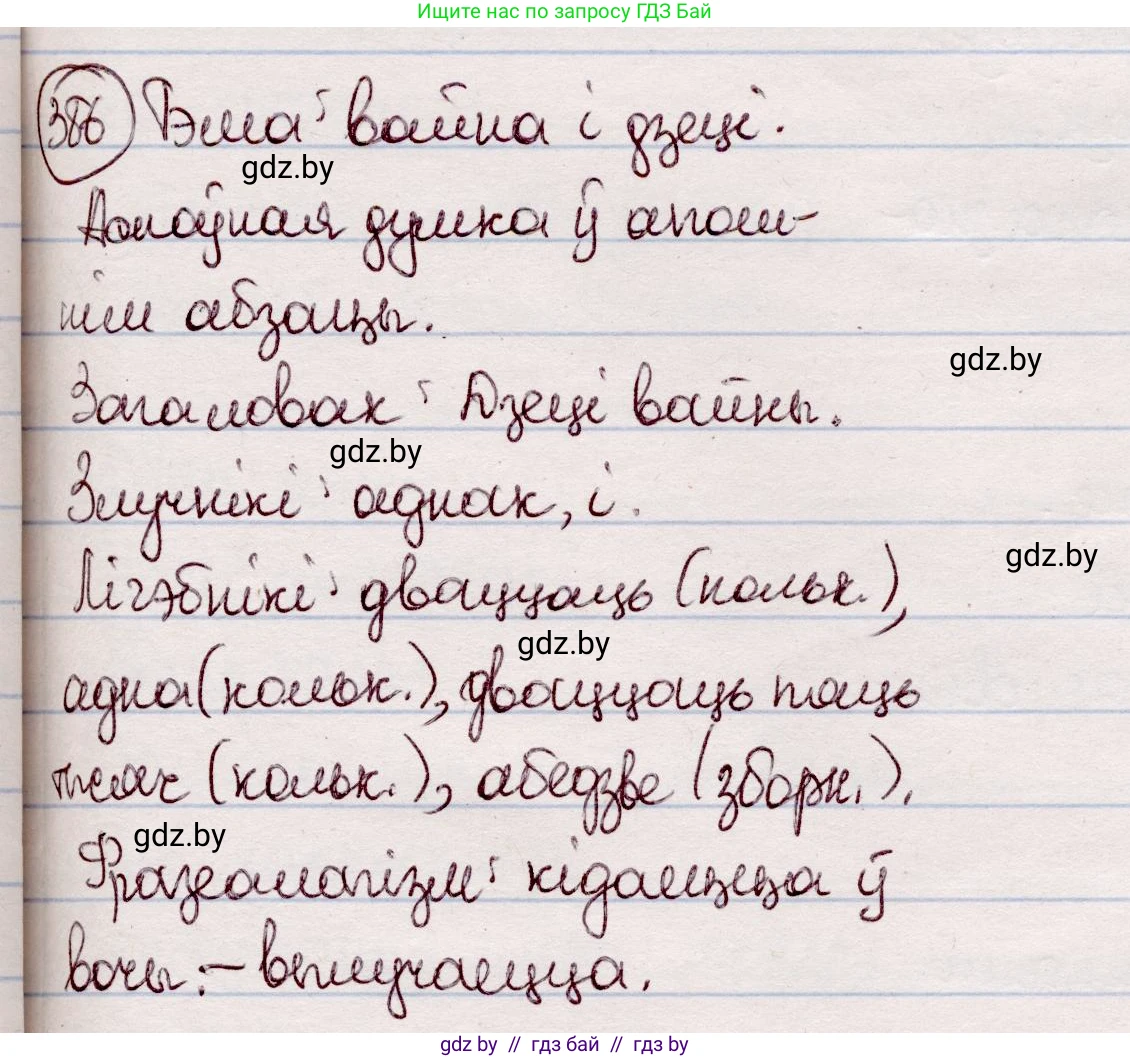 Ищите нас по запросу ГДЗ Бай
386 Тэма: вайна і дзеці.
gdz.by
Галоўная думка ў апош-
нім абзацы.
gdz.by
Загаловак: Дзеці вайны.
gdz.by
Злучнікі: аднак, і.
gdz.by
Лічэбнікі: дваццаць (кольк.),
gdz.by
адна (кольк.), дваццаць пяць
тысяч (кольк.), абедзве (зборн.).
gdz.by
Фразеалагізм: кідаецца ў
вочы: – вылучаецца.
gdz.by // гдз бай // гдз by